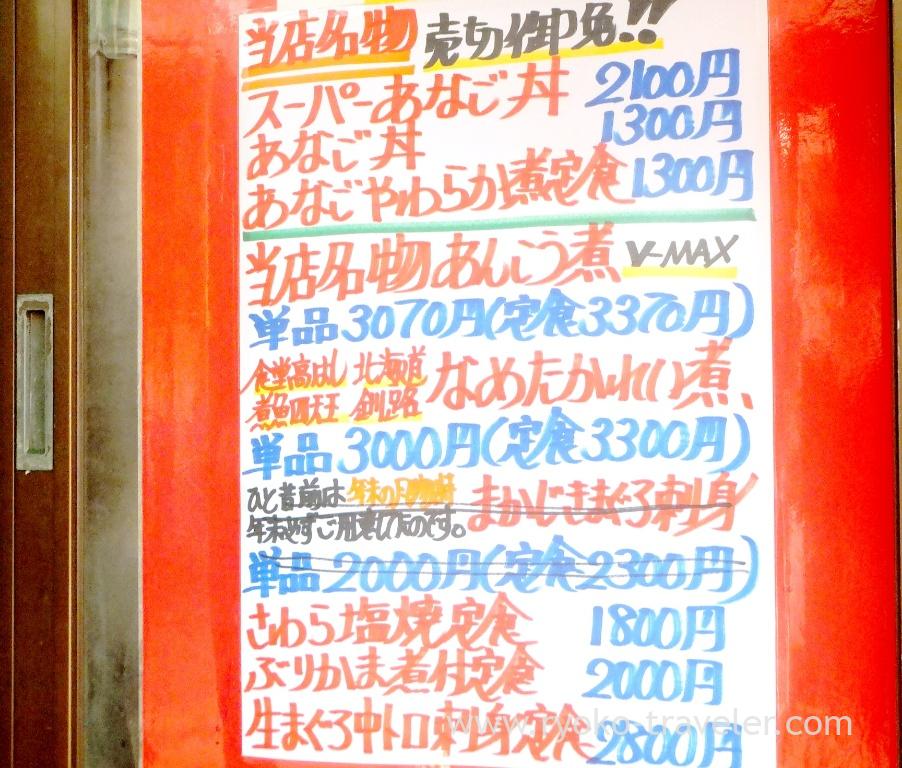 当店名物 売切御免!!
スーパーあなご丼 2100円
あなご丼 1300円
あなごやわらか煮定食 1300円
当店名物 あんこう煮 V-MAX
単品3070円(定食3370円)
食堂高はし 北海道
煮魚四天王 釧路
なめたかれい煮、
単品3000円(定食3300円)
ひと昔前は年末の
年末必ずご用意してたのです。
まかじきまぐろ刺身
単品2000円(定食2300円)
さわら塩焼定食 1800円
ぶりかま煮付定食 2000円
生まぐろ中トロ刺身定食 2800円
www.ryoko-traveler.com